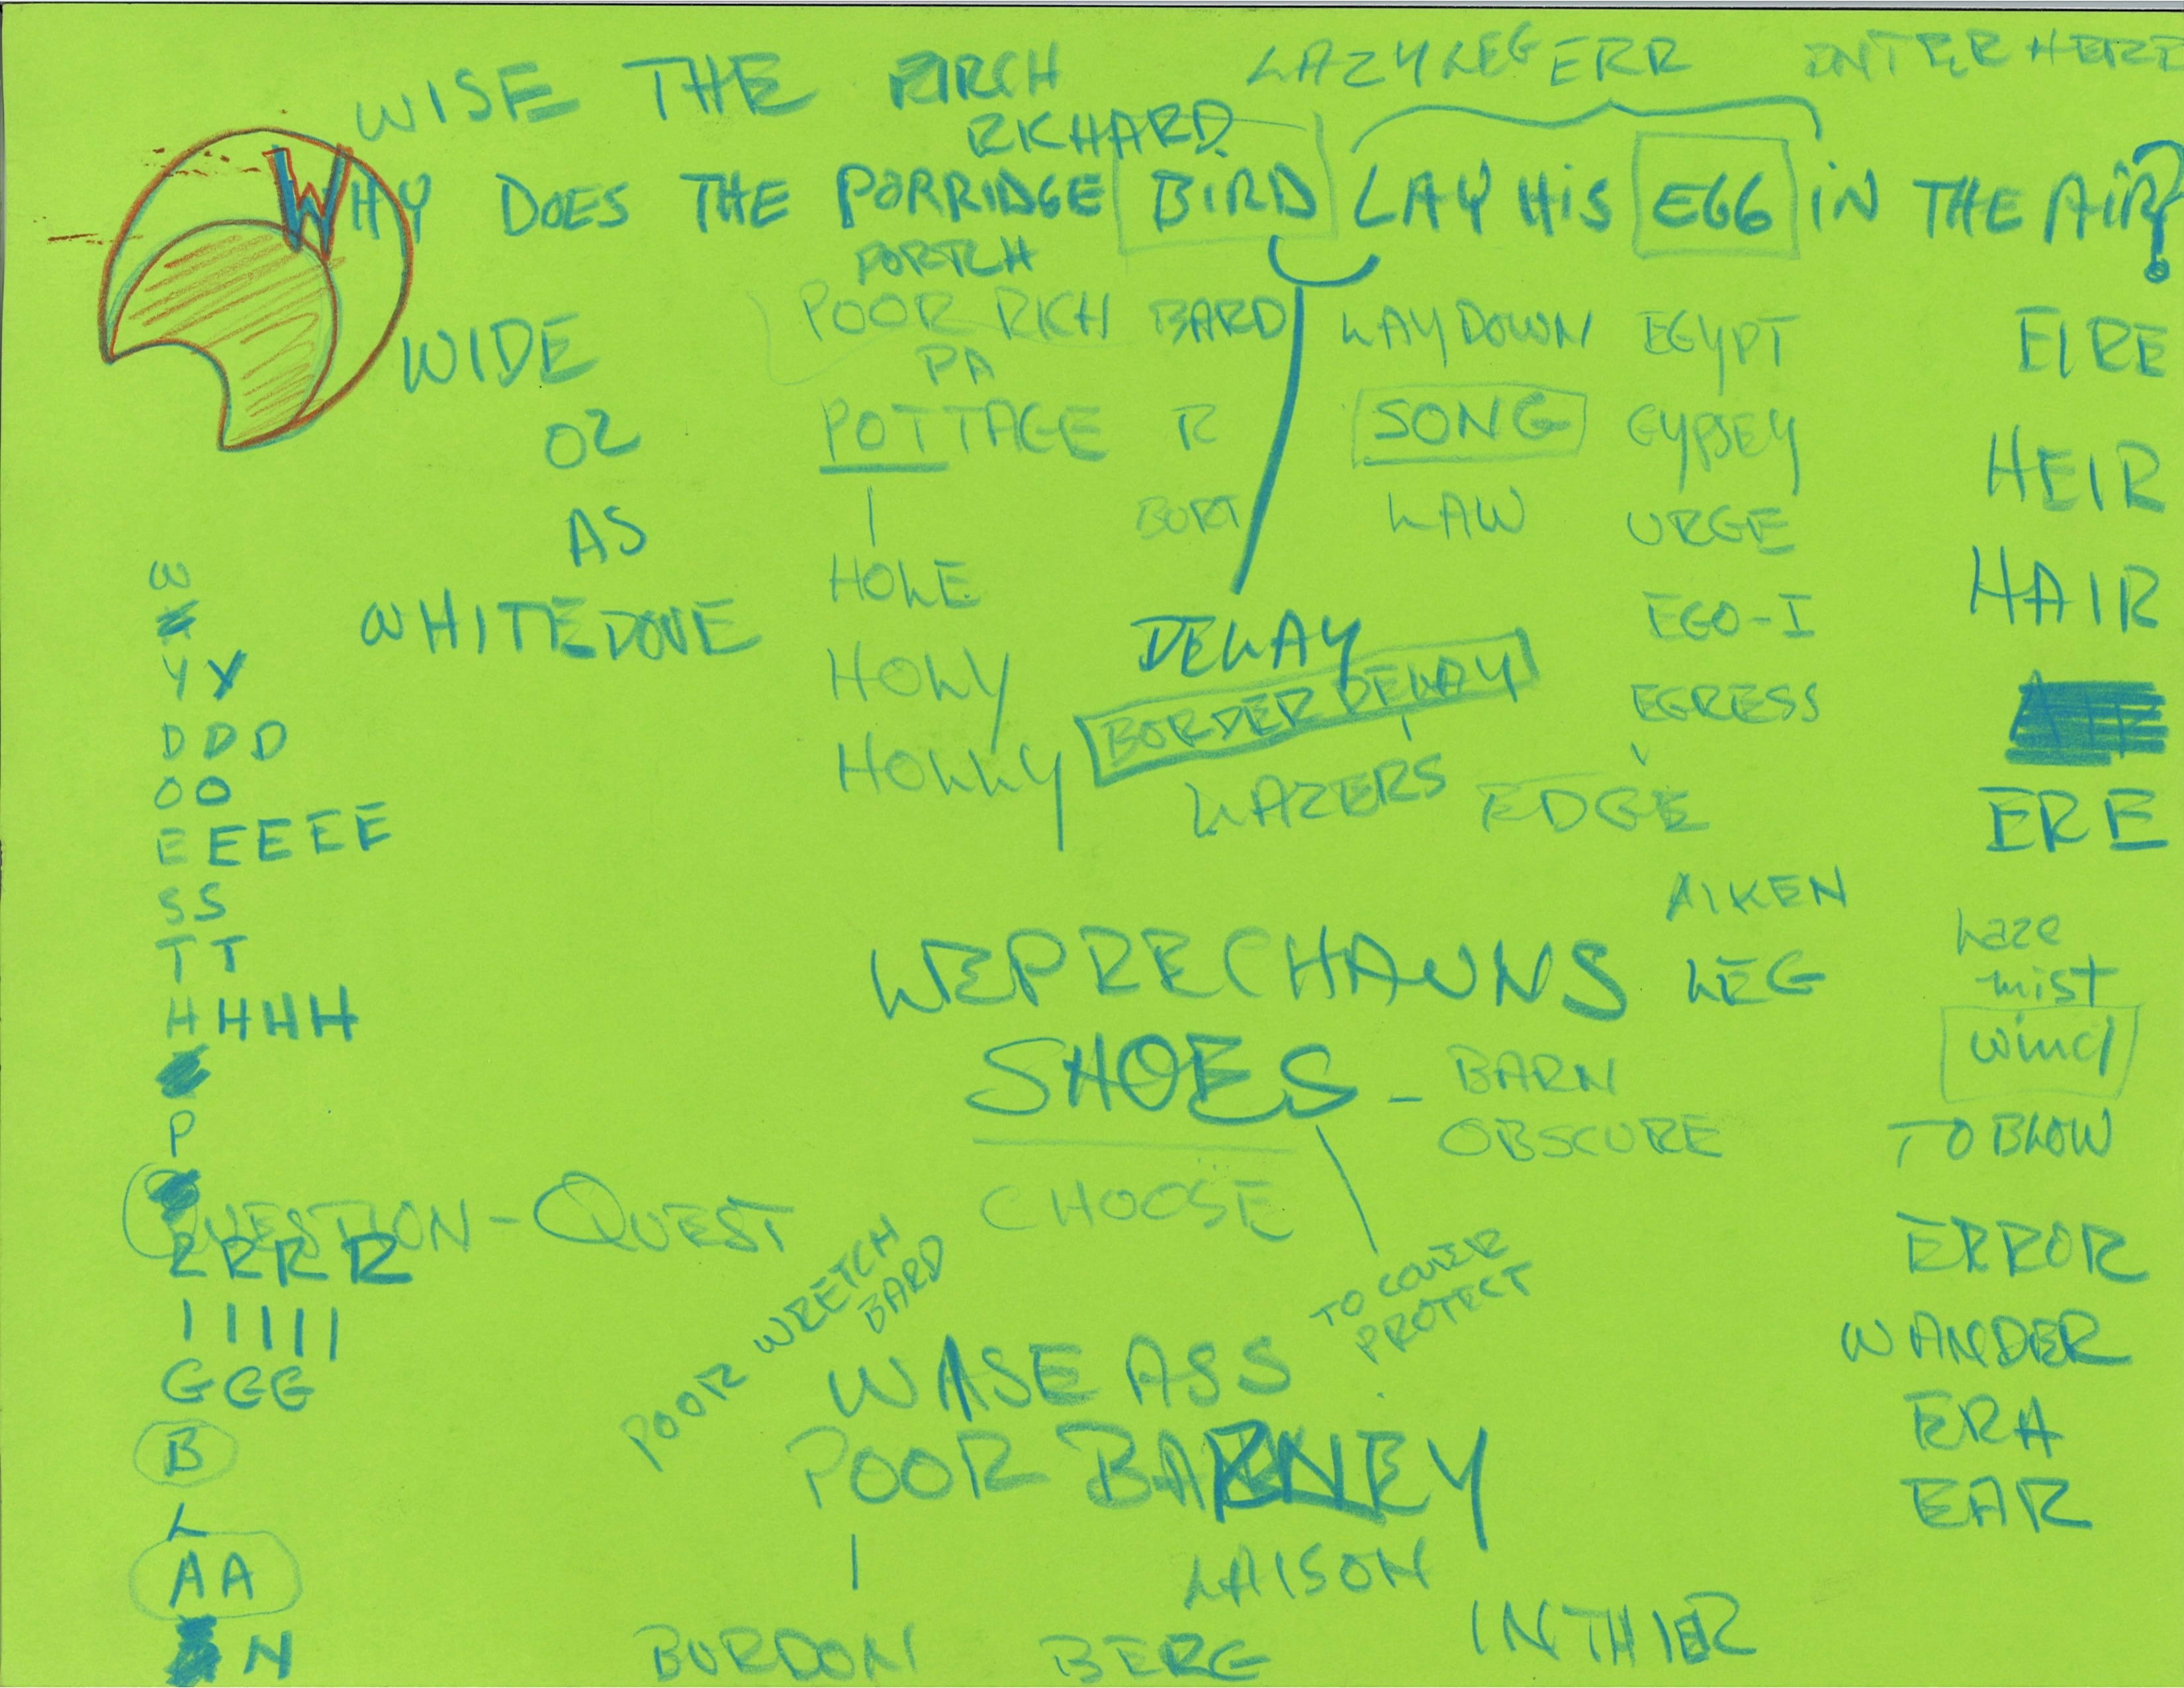 LAZY LEG ERR ENTER HERE
WISE THE
RICHARD
WHY DOES THE PORRIDGE BIRD LAY HIS EGG IN THE AIR?
POOR RICH BARD LAY DOWN EGYPT EIRE
WIDE PA
OZ POTTAGE R SONG GYPSEY HEIR
AS BORT LAW URGE
HOLE HAIR
W
WHITEDOVE DELAY EGO-I
Y Y HOLY BORDER DELAY EGRESS
D D D HOLLY LAZERS EDGE ERE
O O
E E E E E
S S AIKEN
T T LEPRECHAUNS LEG haze
mist
H H H H wind
SHOES - BARN
P OBSCURE TO BLOW
QUESTION - QUEST CHOOSE
R R R R ERROR
POOR WRETCH
BARD
TO COVER
PROTECT
I I I I I WANDER
G G G WASE ASS
B POOR BARNEY ERA
L EAR
A A LAISON
N BURDON BERG IN THIER